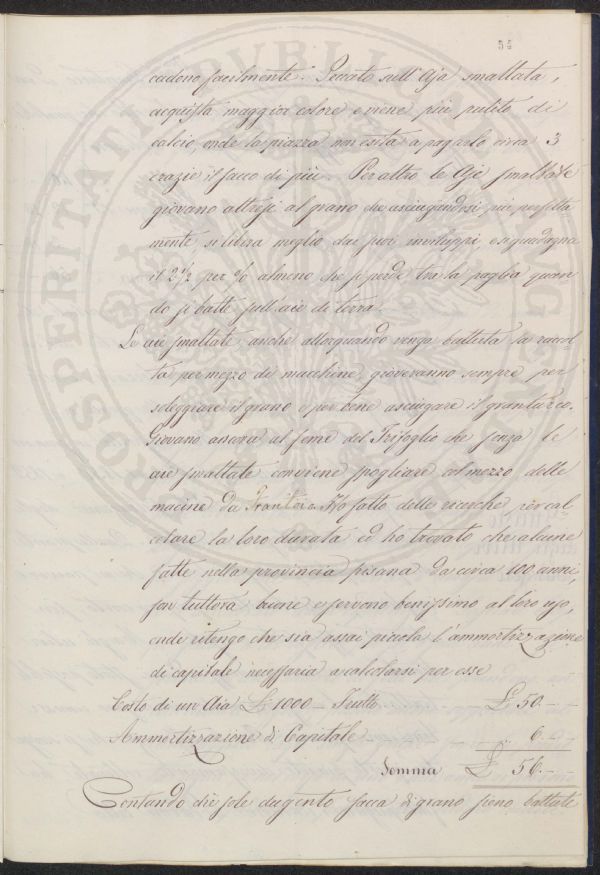 34
cadono facilmente. Seccato sull'Aja smaltata,
acquista maggior colore e viene più pulito di
calcio, onde la piazza non esita a pagarlo circa 3
crazie il sacco di più. Peraltro le Aje smaltate
giovano altresì al grano che asciugandosi più perfetta
mente, si libera meglio dai suoi inviluppi, e si guadagna
il 2 1/2 per % almeno che si perde tra la paglia quan-
do si batte sull'aie di terra.
Le aie smaltate, anche allorquando venga battuta la raccol-
ta per mezzo di macchine, gioveranno sempre per
soleggiare il grano e per bene asciugare il granturco.
Giovano ancora al seme del Trifoglio che senza le
aie smaltate conviene spogliare col mezzo delle
macine da Frantoio. Ho fatto delle ricerche per cal-
colare la loro durata ed ho trovato che alcune
fatte nella provincia pisana da circa 100 anni,
son tuttora buone e servono benissimo al loro uso,
onde ritengo che sia assai piccola l'ammortizzazione
di capitale necessaria a calcolarsi per esse
Costo di un Aia £ 1000 — Frutto £ 50. -
Ammortizzazione di Capitale " 6. -
Somma £ 56. -
Contando che sole dugento sacca di grano sieno battute
PROSPERITATI PUBLICAE AUGENDAE